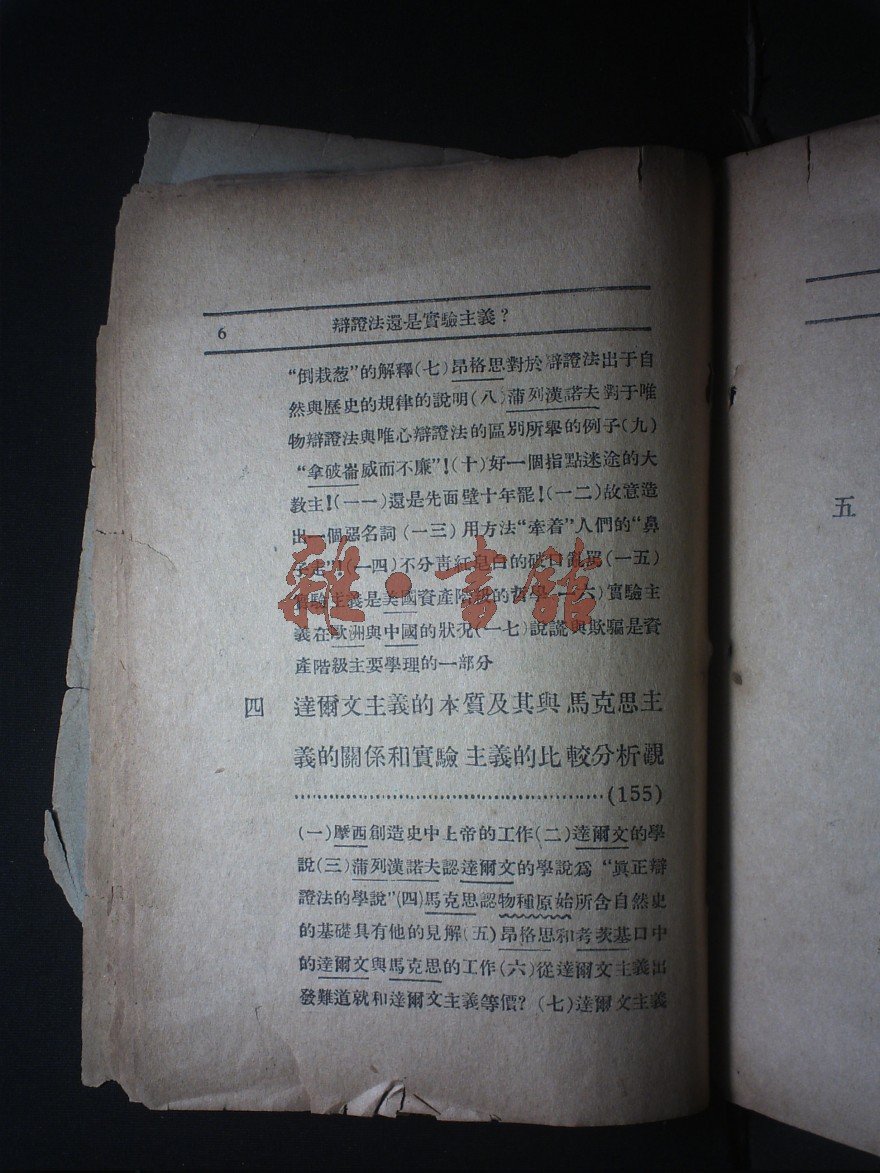 6 辯證法還是實驗主義?
“倒栽葱”的解釋(七)昂格思對於辯證法出于自
然與歷史的規律的說明(八)蒲列漢諾夫對于唯
物辯證法與唯心辯證法的區別所舉的例子(九)
“拿破崙威而不廉”!(十)好一個指點迷途的大
教主!(一一)還是先面壁十年罷!(一二)故意造
出一個惡名詞(一三)用方法“牽着”人們的“鼻
子走”!(一四)不分靑紅皂白的破口亂罵(一五)
實驗主義是美國資產階級的哲學(一六)實驗主
義在歐洲與中國的狀况(一七)說謊與欺騙是資
產階級主要學理的一部分
四 達爾文主義的本質及其與馬克思主
義的關係和實驗主義的比較分析觀
(155)
(一)摩西創造史中上帝的工作(二)達爾文的學
說(三)蒲列漢諾夫認達爾文的學說爲“眞正辯
證法的學說”(四)馬克思認物種原始所含自然史
的基礎具有他的見解(五)昂格思和考茨基口中
的達爾文與馬克思的工作(六)從達爾文主義出
發難道就和達爾文主義等價?(七)達爾文主義
五
雜·書館